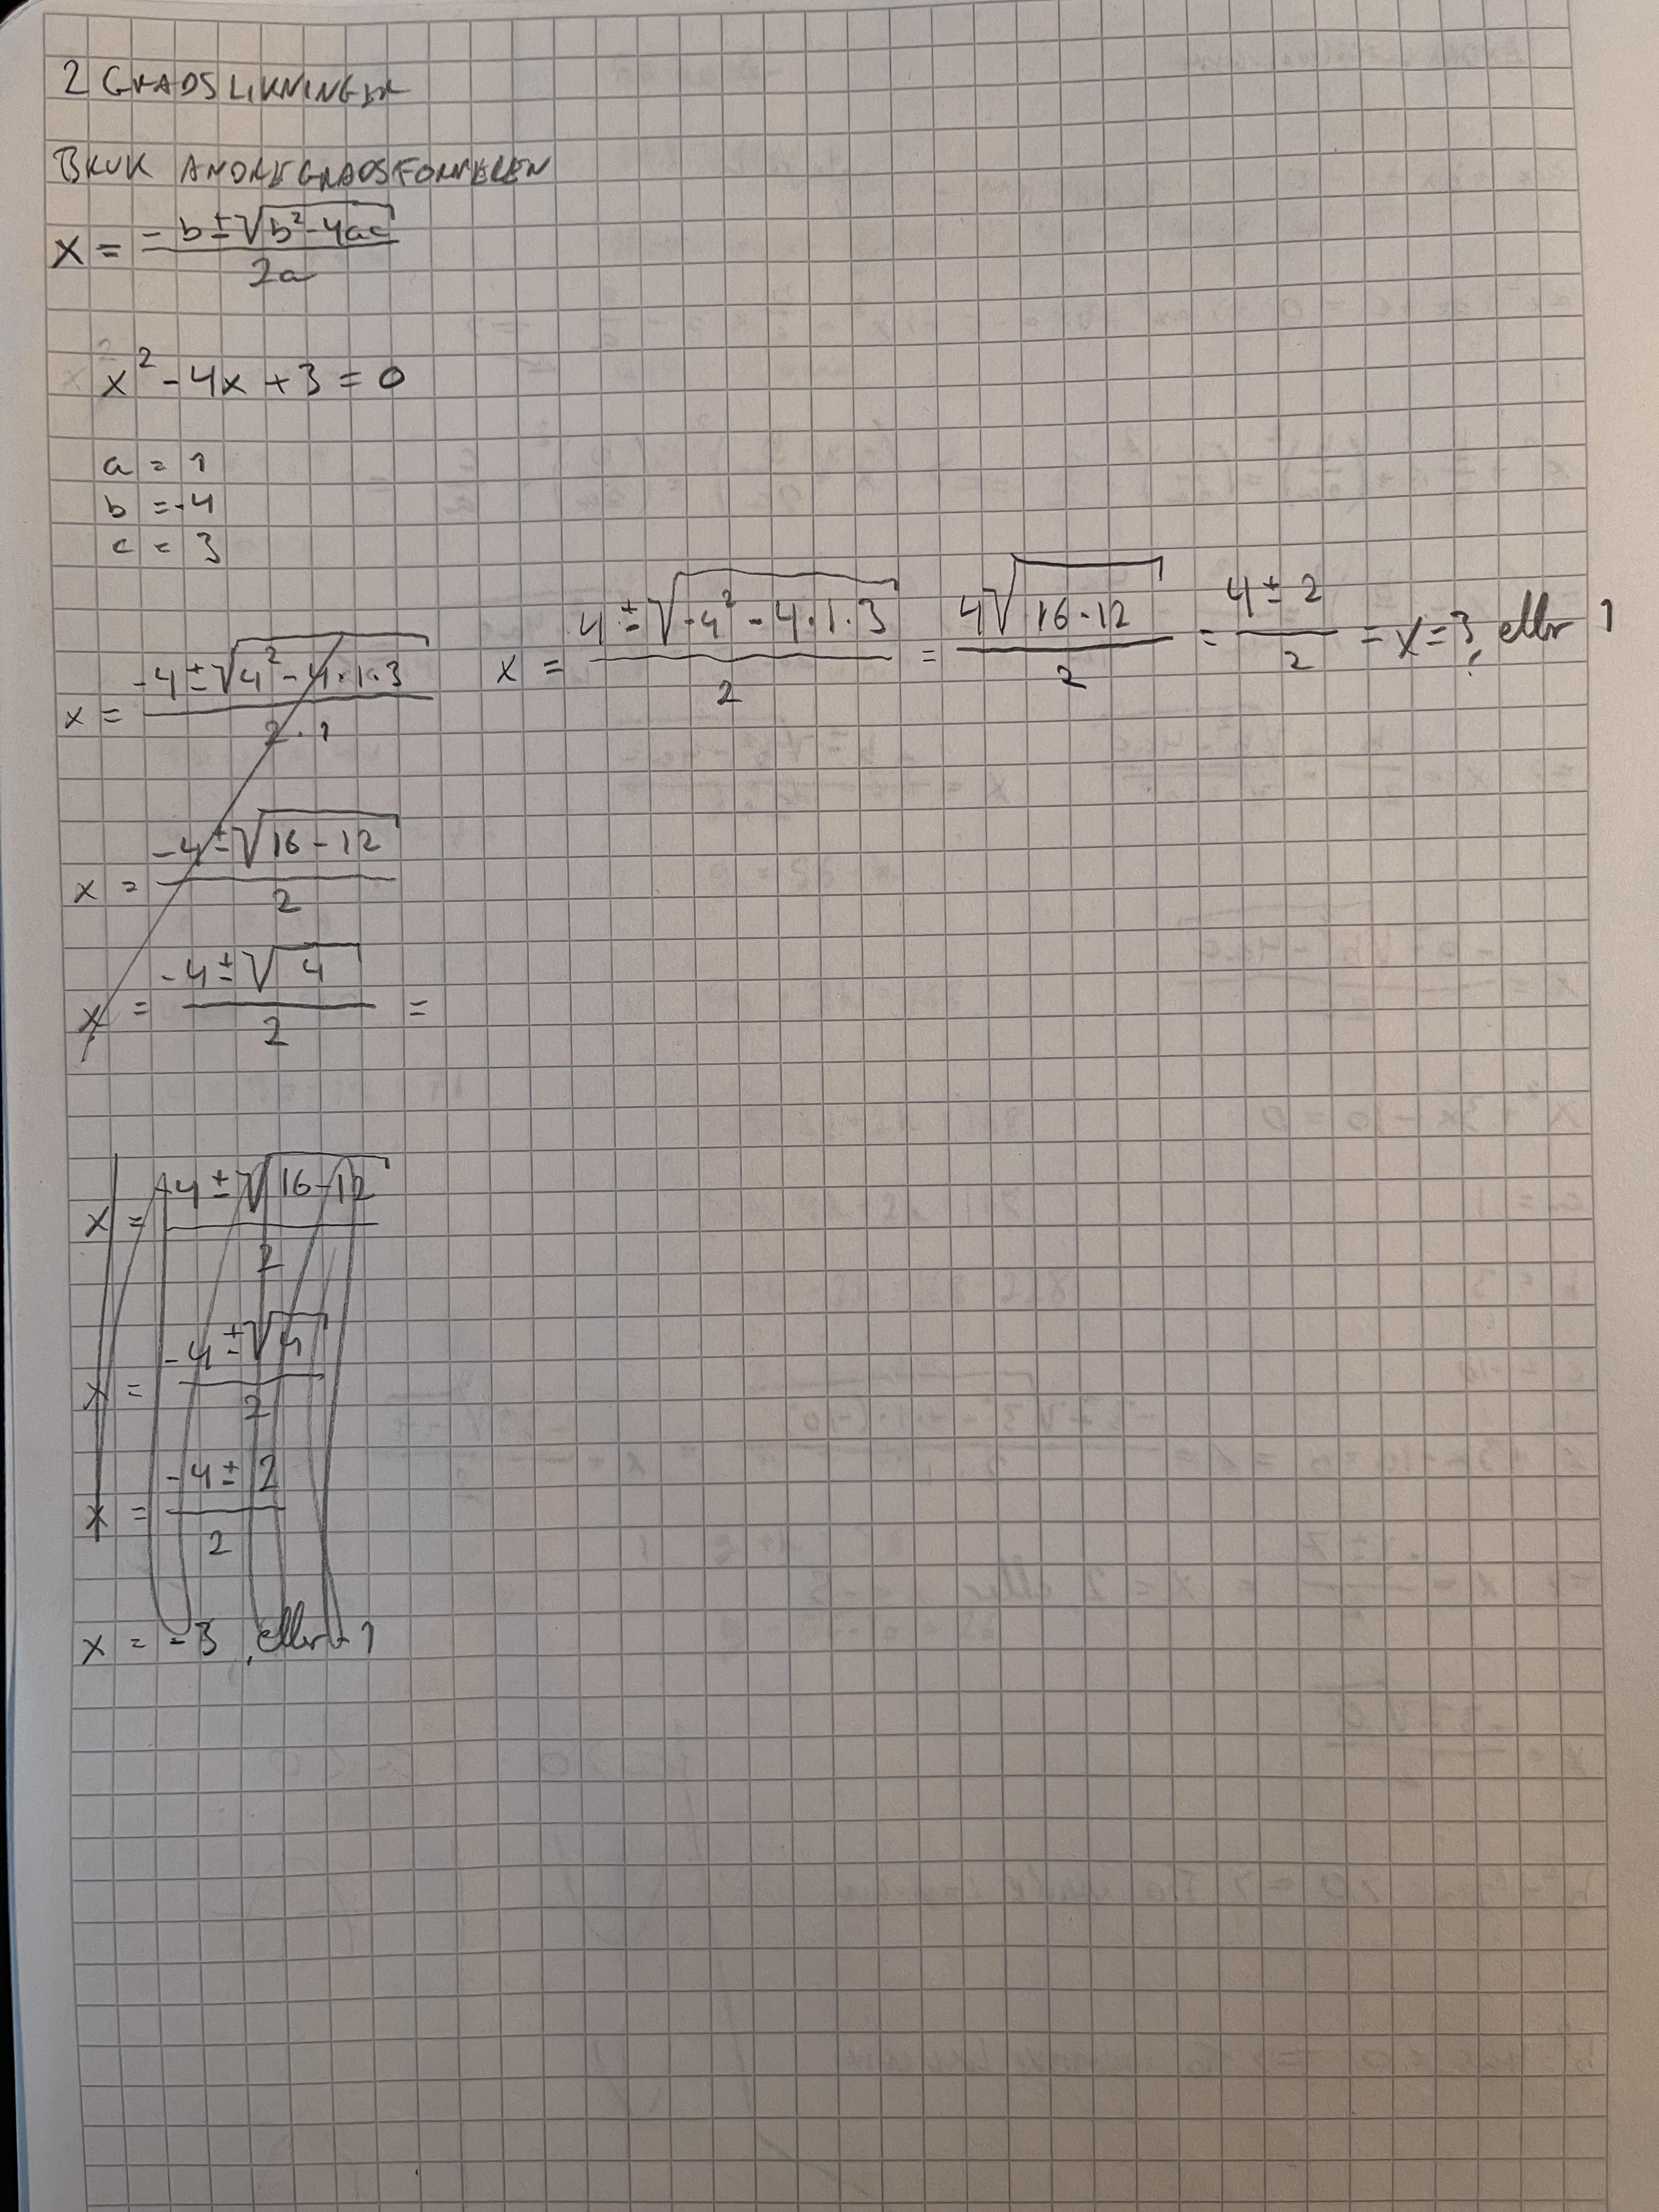 2 GRADSLIKNINGER
BRUK ANDREGRADSFORMELEN
x = -b ± √(b² - 4ac) / 2a
x² - 4x + 3 = 0
a = 1
b = -4
c = 3
x = -4 ± √(4² - 4·1·3) / 2·1
x = 4 ± √(-4² - 4·1·3) / 2 = 4√(16-12) / 2 = 4 ± 2 / 2 = x = 3, eller 1
x = -4 ± √(16 - 12) / 2
x = -4 ± √4 / 2 =
x = 4 ± √(16-12) / 2
x = -4 ± √4 / 2
x = -4 ± 2 / 2
x = -3, eller -1